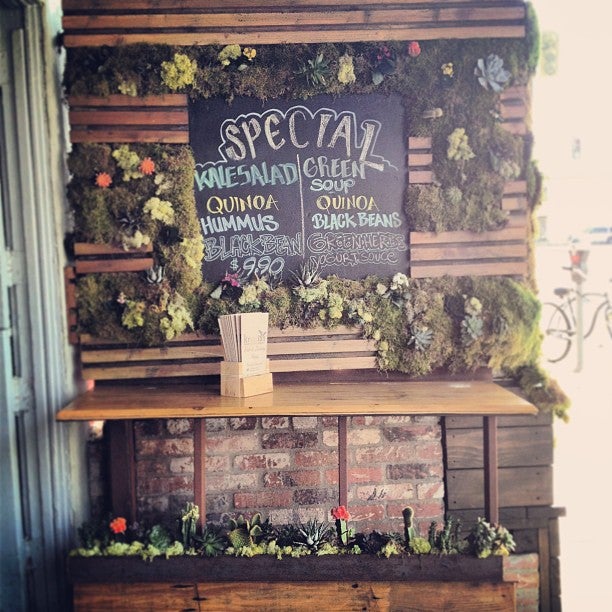 SPECIAL
KALE SALAD
QUINOA
HUMMUS
BLACK BEAN
$9.90
GREEN
SOUP
QUINOA
BLACK BEANS
GREEN HERBS
YOGURT SOUCE